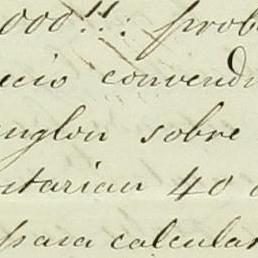 000!!: prob
ecio convend
englon sobre
ctarian 40
para calcular